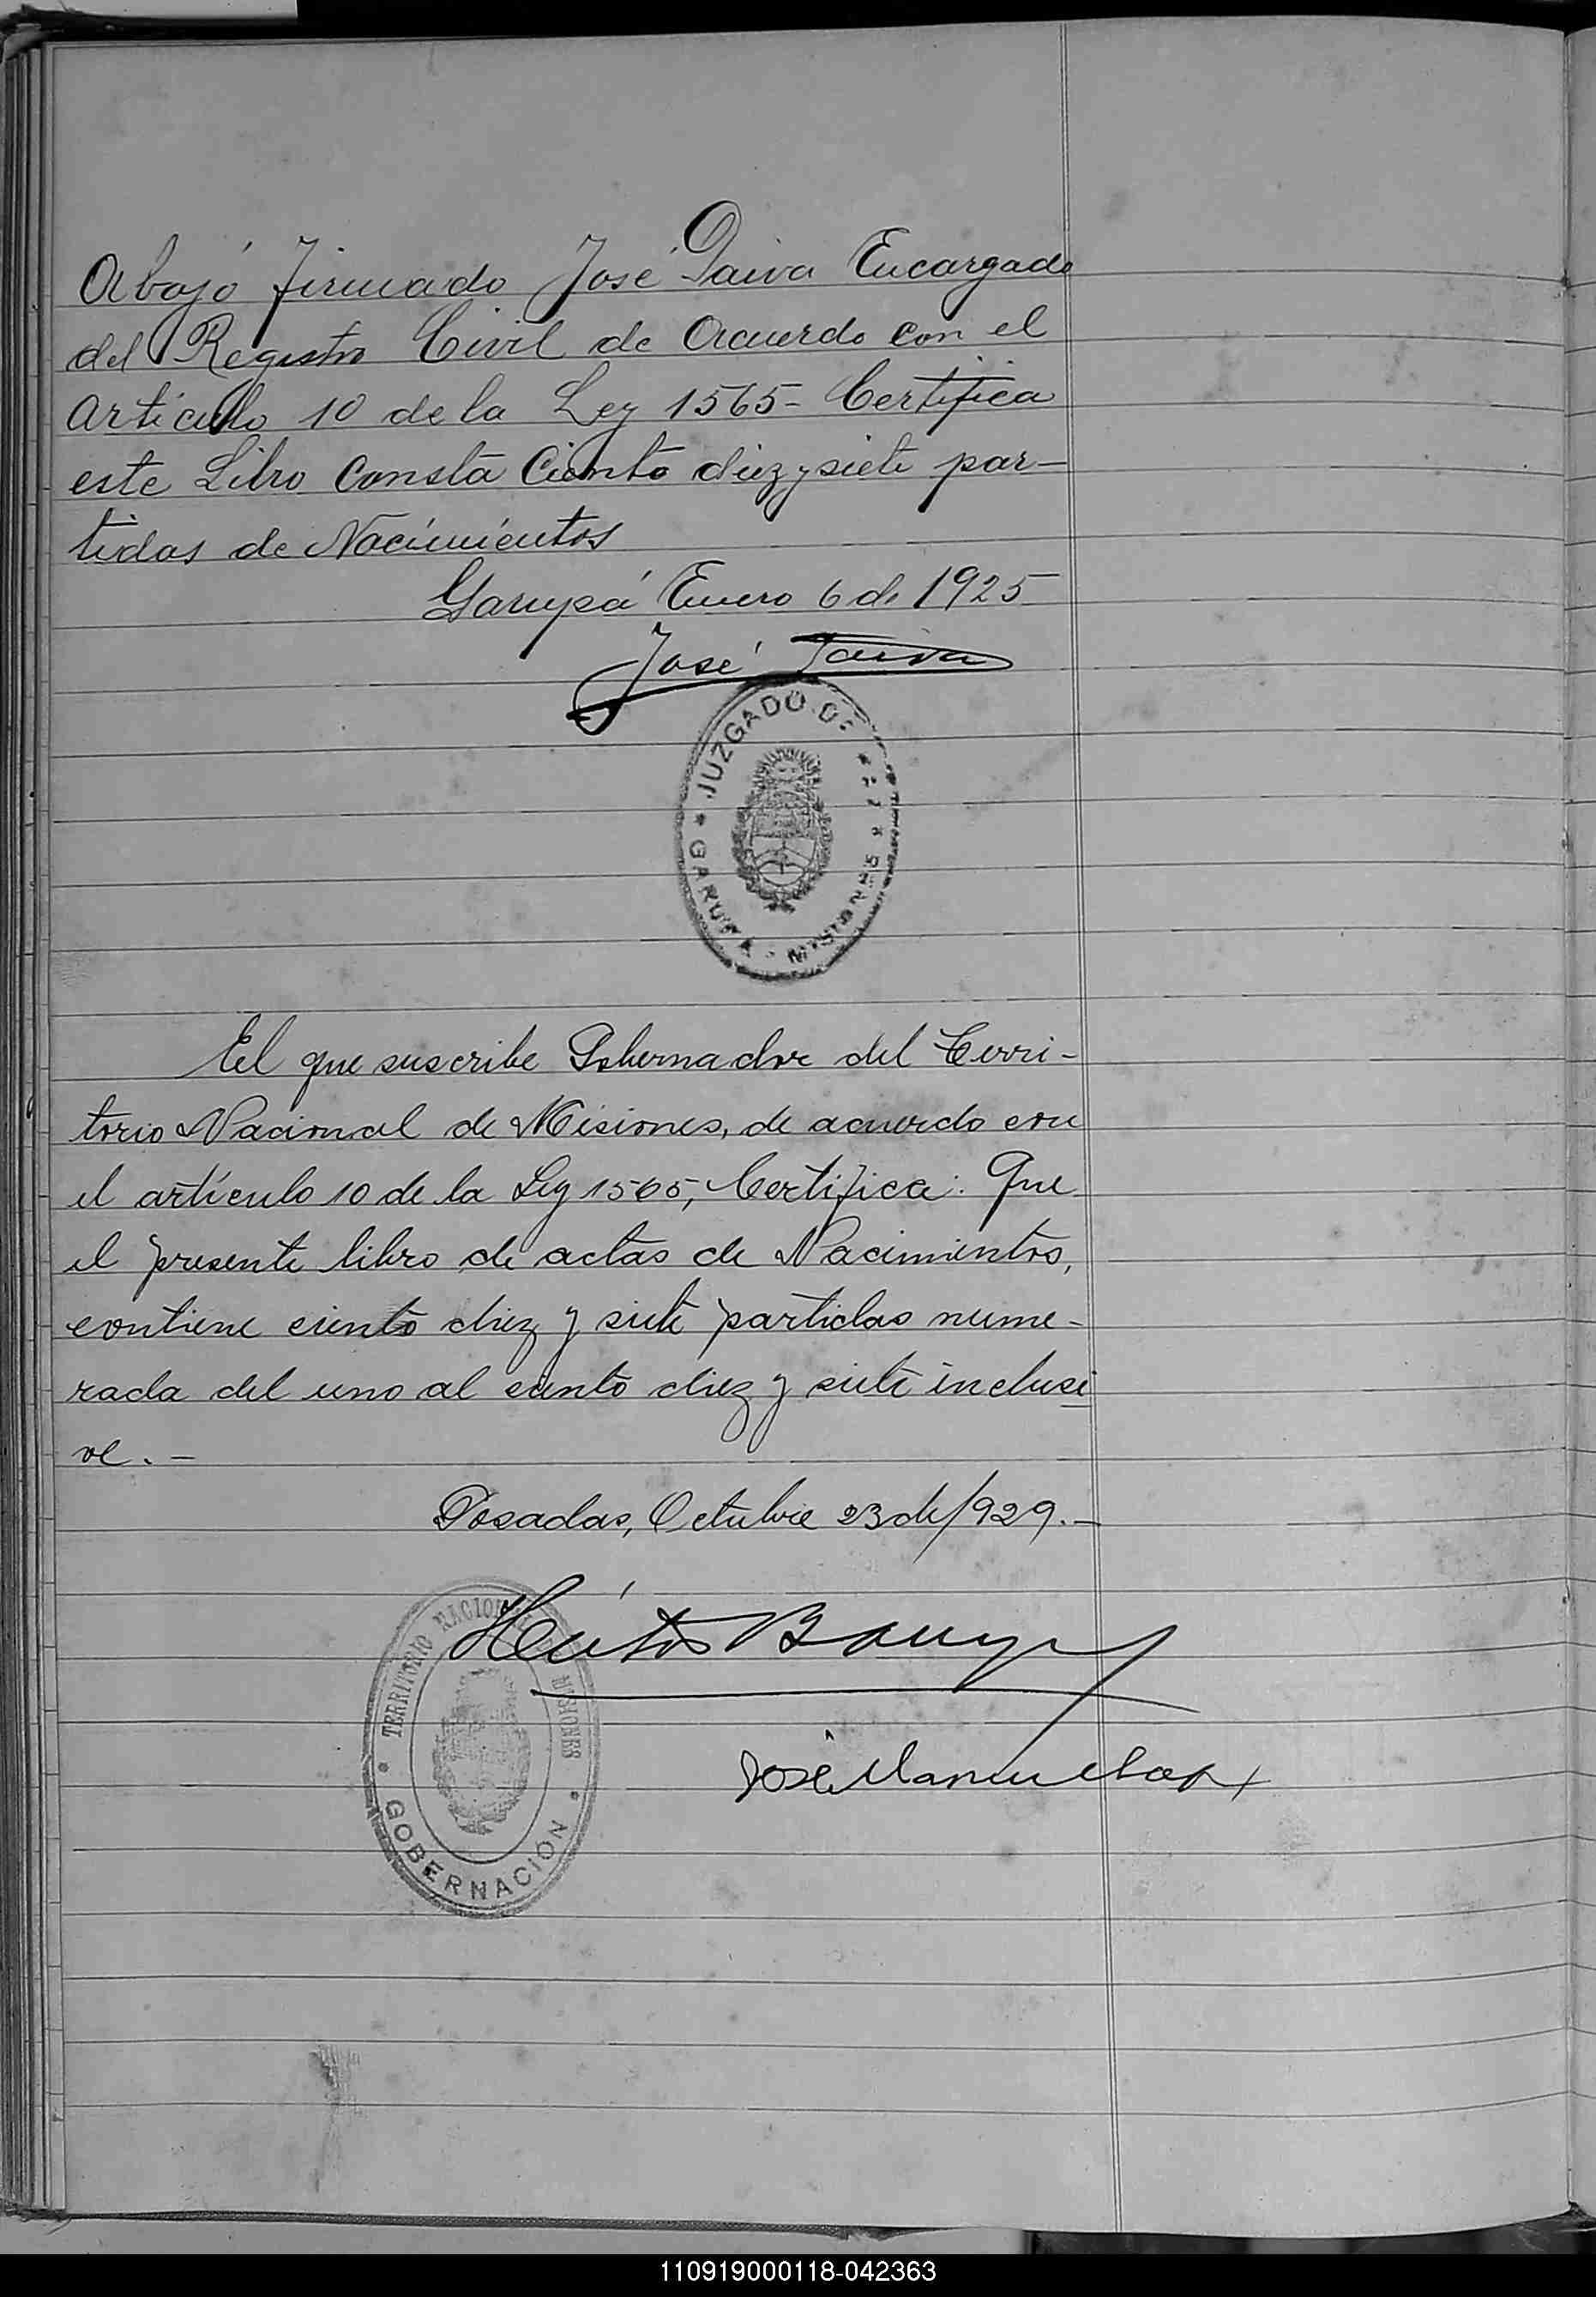 Abajó firmado José Paiva Encargado
del Registro Civil de Acuerdo con el
Artículo 10 de la Ley 1565- Certifica
este Libro Consta Ciento diez y siete par-
tidas de Nacimientos
Garupá Enero 6 de 1925
José Paiva
JUZGADO DE
GARUPA - MISIONES
El que suscribe Gobernador del Terri-
torio Nacional de Misiones, de acuerdo con
el artículo 10 de la Ley 1565, Certifica: Que
el presente libro de actas de Nacimientos,
contiene ciento diez y siete partidas nume-
rada del uno al ciento diez y siete inclusi
ve. -
Posadas, Octubre 23 de/929. -
TERRITORIO NACIONAL MISIONES
GOBERNACION
José Manuel
110919000118-042363